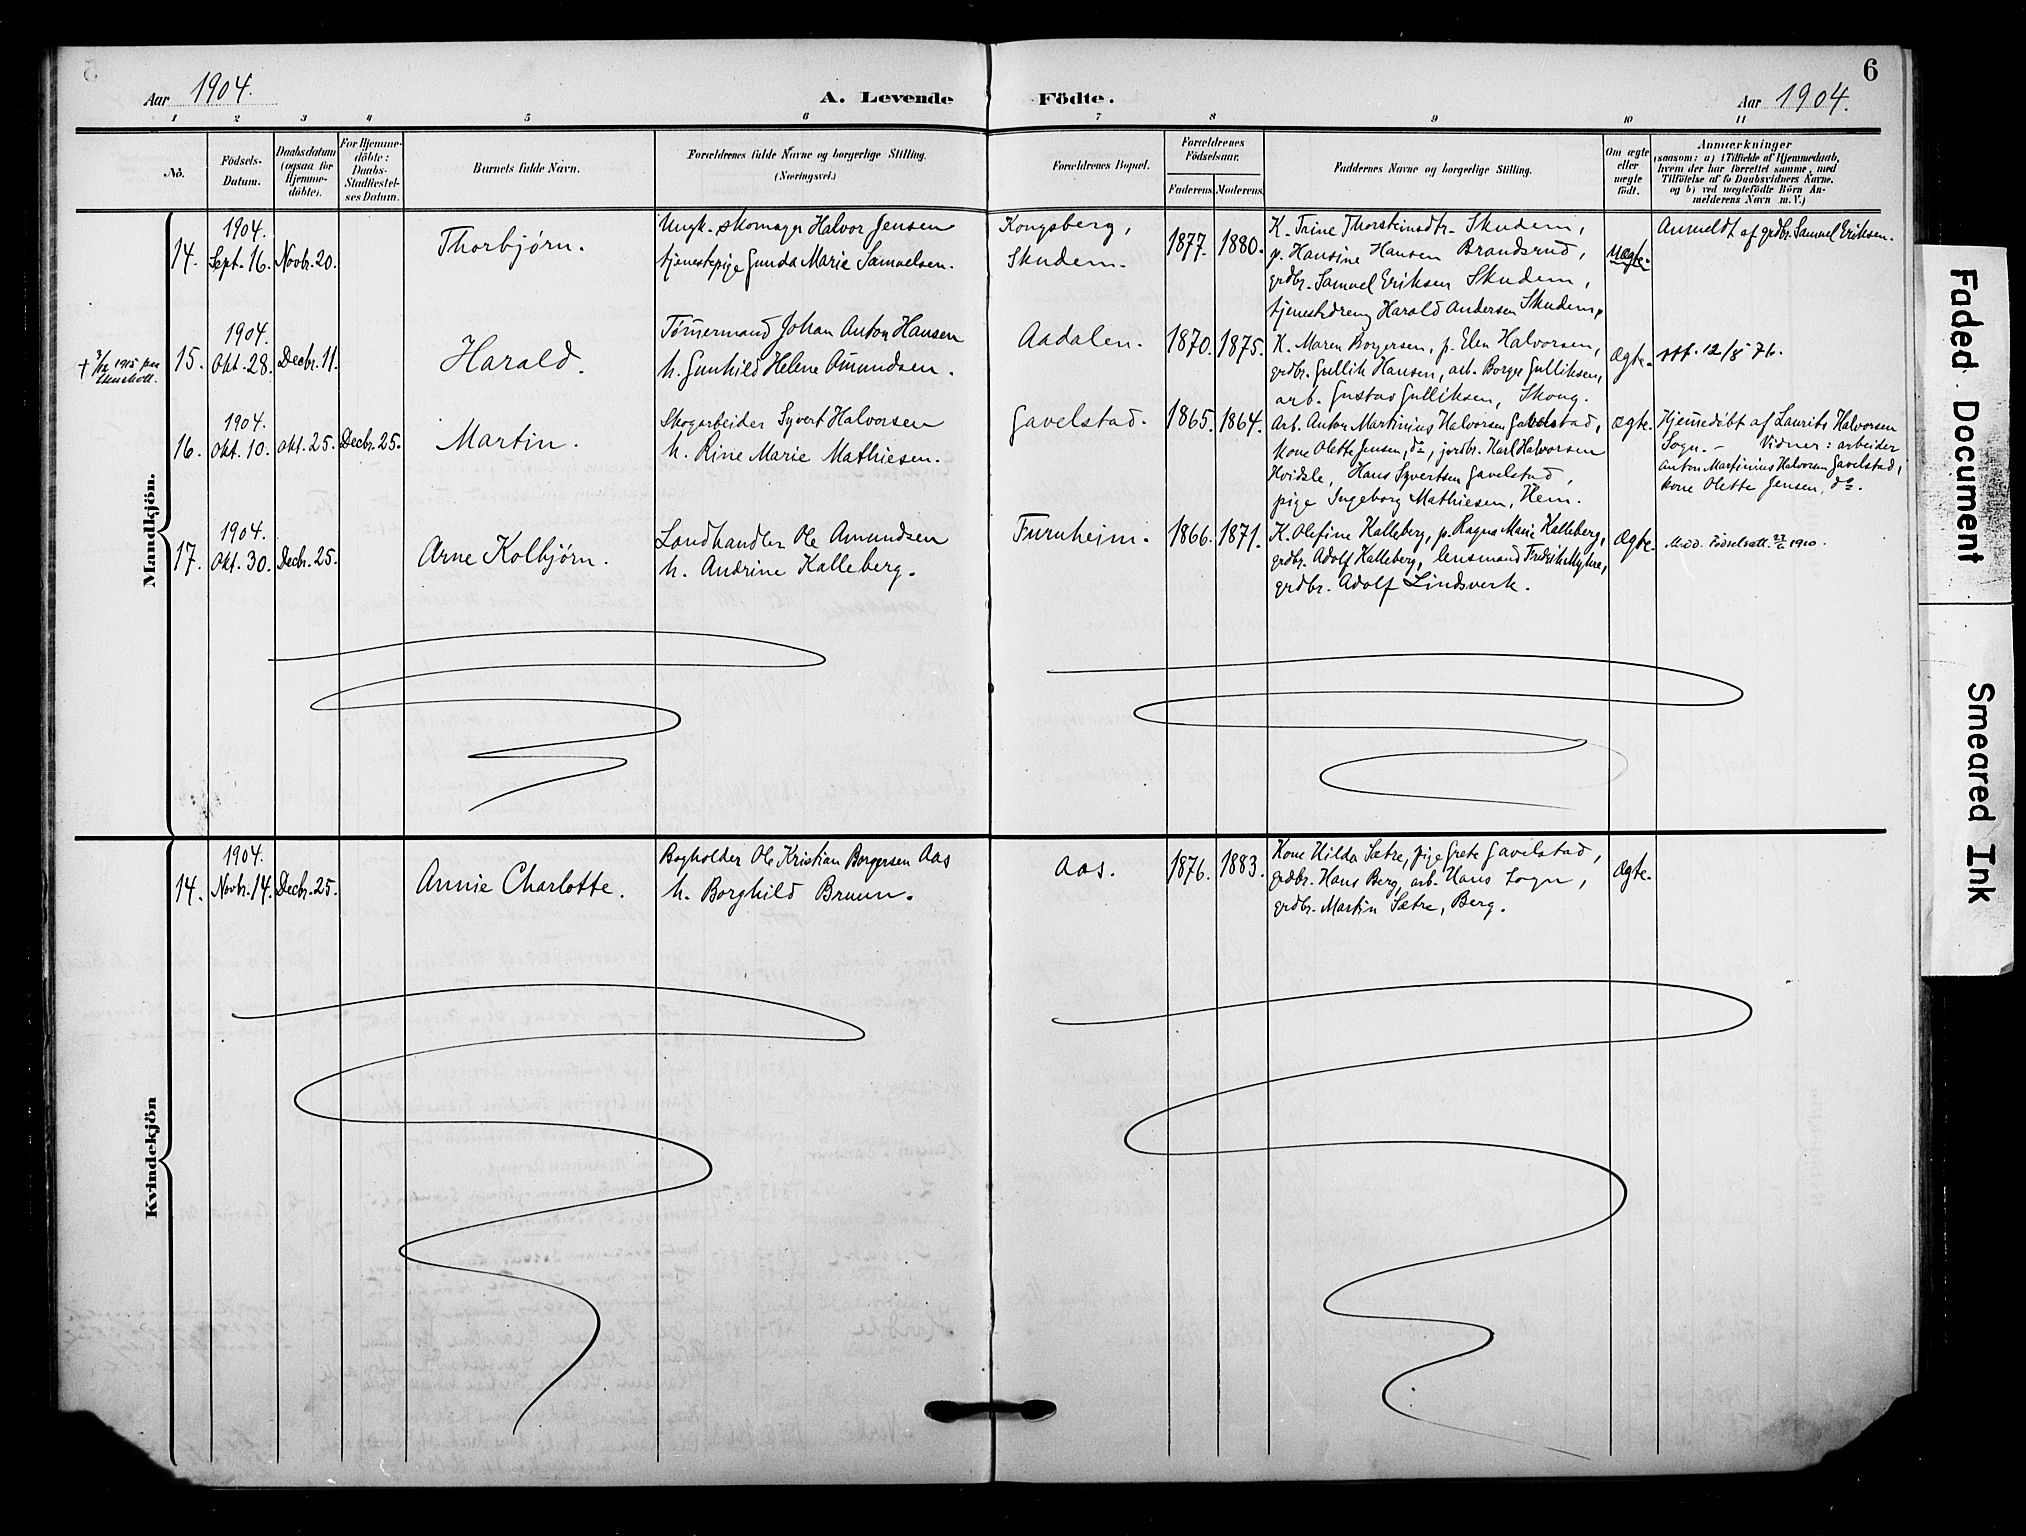 6
Aar 1904.
A. Levende Födte.
Aar 1904.
1 2 3 4 5 6 7 8 9 10 11
No.
Födsels-
Datum.
Daabsdatum
(ogsaa for
Hjemme-
döbte).
For Hjemme-
döbte:
Daabs-
Stadfæstel-
ses Datum.
Barnets fulde Navn.
Forældrenes fulde Navne og borgerlige Stilling.
(Næringsvei.)
Forældrenes Bopæl.
Forældrenes
Födselsaar.
Faderens. Moderens.
Faddernes Navne og borgerlige Stilling.
Om ægte
eller
uægte
födt.
Anmærkninger
(saasom: a) i Tilfælde af Hjemmedaab,
hvem der har forrettet samme, med
Tilföielse af to Daabsvidners Navne.
og b) ved uægtefödte Börn An-
melderens Navn m. V.)
Mandkjön.
14.
1904.
Sept. 16.
Novbr. 20.
Thorbjørn.
Ungk. skomager Halvor Jensen
tjenestepige Gunda Marie Samuelsen.
Kongsberg,
Skudem.
1877. 1880.
K. Trine Thorsteinsdtr. Skudem,
p. Hansine Hansen Brandsrud,
grdbr. Samuel Eriksen Skudem,
tjenestedreng Harald Andersen Skudem.
Uægte.
Anmeldt af grdbr. Samuel Eriksen.
† 1915
15.
1904.
Okt. 28.
Decbr. 11.
Harald.
Tømmermand Johan Anton Hansen
h. Gunhild Helene Amundsen.
Aadalen.
1870. 1875.
K. Maren Borgersen, p. Elen Halvorsen,
grdbr. Gullik Hansen, arb. Borger Gulliksen,
arb. Gustav Gulliksen, Skoug.
Ægte.
att. 12/8 76.
16.
1904.
Okt. 10.
Okt. 25.
Decbr. 25.
Martin.
Skogarbeider Syvert Halvorsen
h. Rine Marie Mathiesen.
Gavelstad.
1865. 1864.
Arb. Anton Martinius Halvorsen Gavelstad,
kone Olette Jensen, do, jordbr. Karl Halvorsen
Hvidsle, Hans Syvertsen Gavelstad,
pige Ingeborg Mathiesen, Hem.
Ægte.
Hjemmedøbt af Laurits Halvorsen
Sogn. – Vidner: arbeider
Anton Martinius Halvorsen Gavelstad,
kone Olette Jensen, do.
17.
1904.
Okt. 30.
Decbr. 25.
Arne Kolbjørn.
Landhandler Ole Amundsen
h. Andrine Kalleberg.
Furuheim.
1866. 1871.
K. Olefine Kalleberg, p. Ragna Marie Kalleberg,
grdbr. Adolf Kalleberg, lensmand Fredrik Myhre,
grdbr. Adolf Lindsverk.
Ægte.
Medd. Fødselsatt. 1910.
Kvindekjön
14.
1904.
Novbr. 14.
Decbr. 25.
Annie Charlotte.
Bogholder Ole Kristian Borgersen Aas
h. Borghild Bruun.
Aas.
1876. 1883.
Kone Hilda Sætre, pige Grete Gavelstad,
grdbr. Hans Berg, arb. Hans Sogn,
grdbr. Martin Sætre, Berg.
Ægte.
Faded Document
Smeared Ink